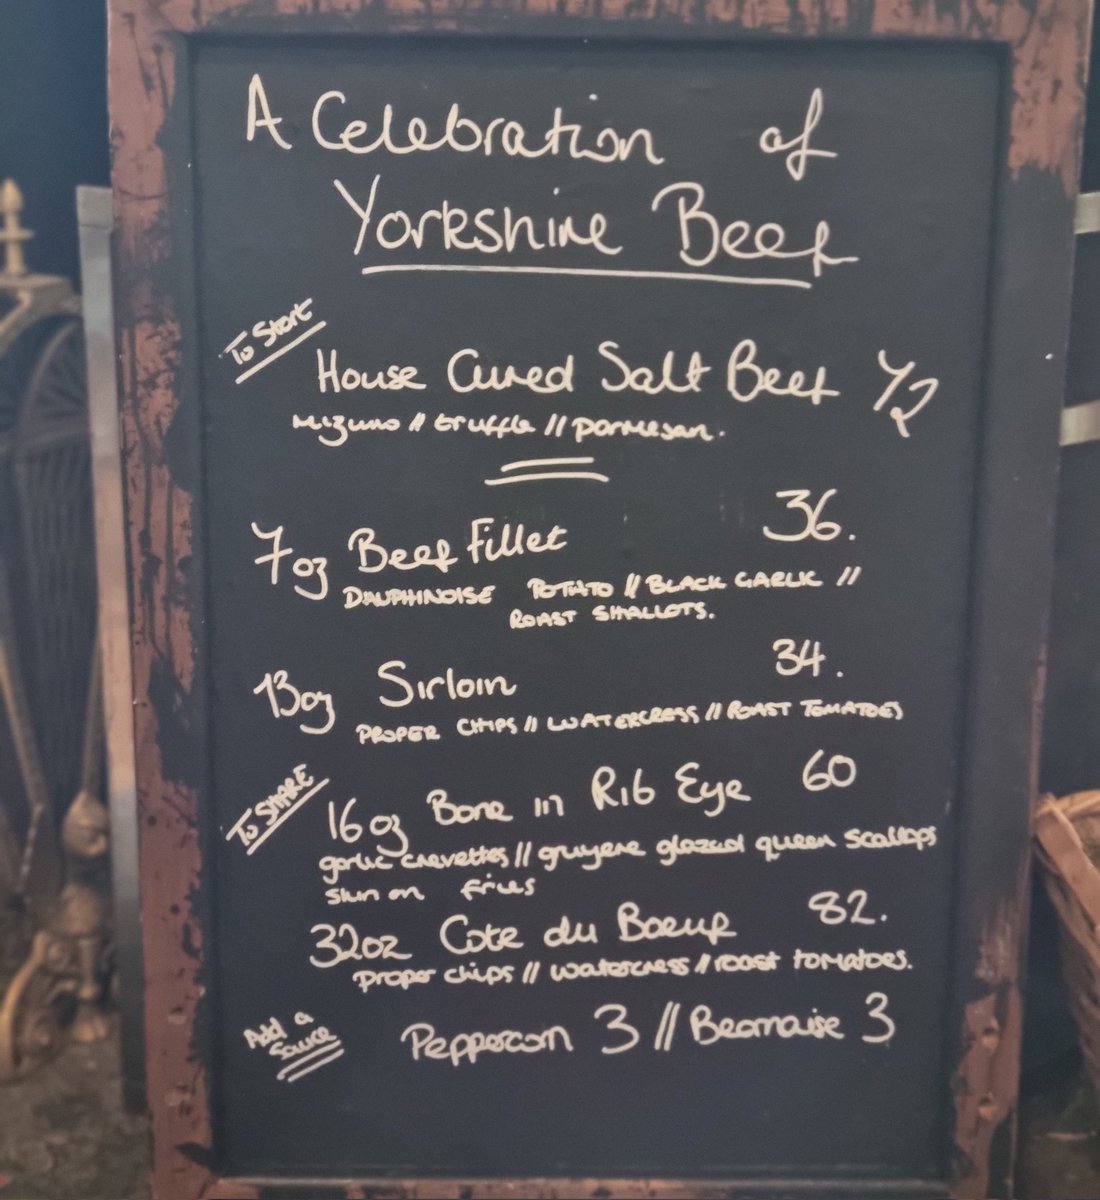 A Celebration of
Yorkshire Beef
To Start
House Cured Salt Beef 12
mizuno // truffle // parmesan.
7oz Beef Fillet 36.
DAUPHINOISE POTATO // BLACK GARLIC //
ROAST SHALLOTS.
13oz Sirloin 34.
PROPER CHIPS // WATERCRESS // ROAST TOMATOES
To SHARE
16oz Bone in Rib Eye 60
garlic crevettes // gruyere glazed queen scallops
skin on fries
32oz Cote du Boeuf 82.
proper chips // watercress // roast tomatoes.
Add a
Sauce
Peppercorn 3 // Bearnaise 3